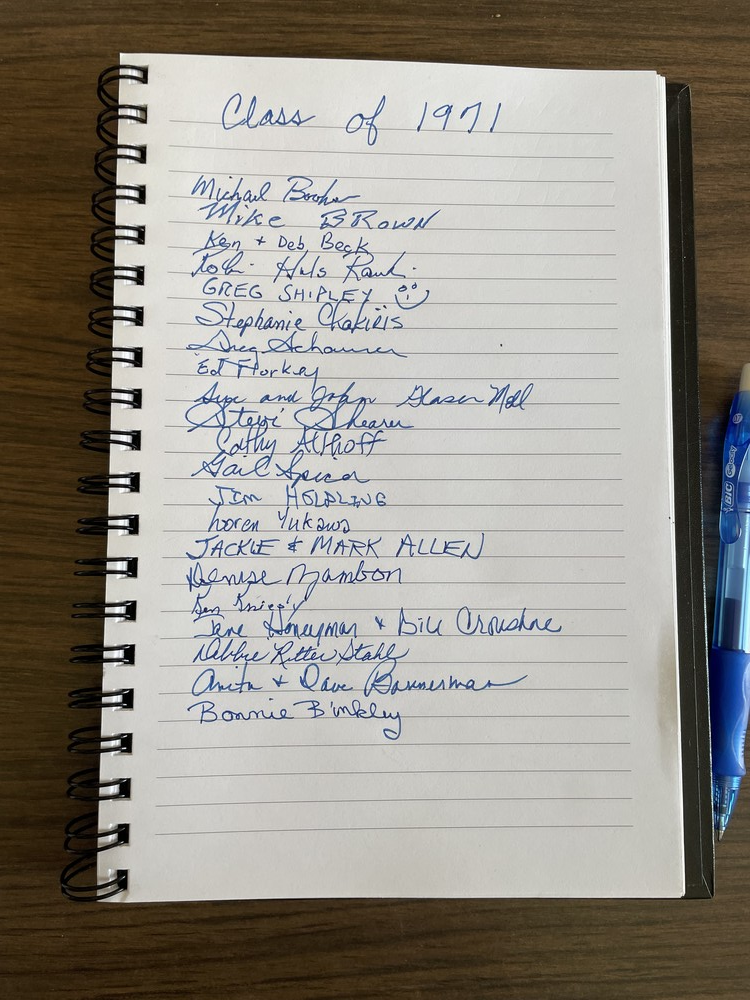 Class of 1971
Michael
Mike BROWN
Ken + Deb Beck
Hals
GREG SHIPLEY
Stephanie Ckakiris
Greg
Ed Florkey
Sue and John Glaser Noll
Stevi Shearer
Cathy Althoff
Gail Spicer
JIM HOLDING
Loren Yukawa
JACKIE & MARK ALLEN
Denise Zambon
Ken
Jane Honeyman & Bill Croushore
Debbie Ritter Stahl
Anita + Dave Bannerman
Bonnie Binkley
BIC